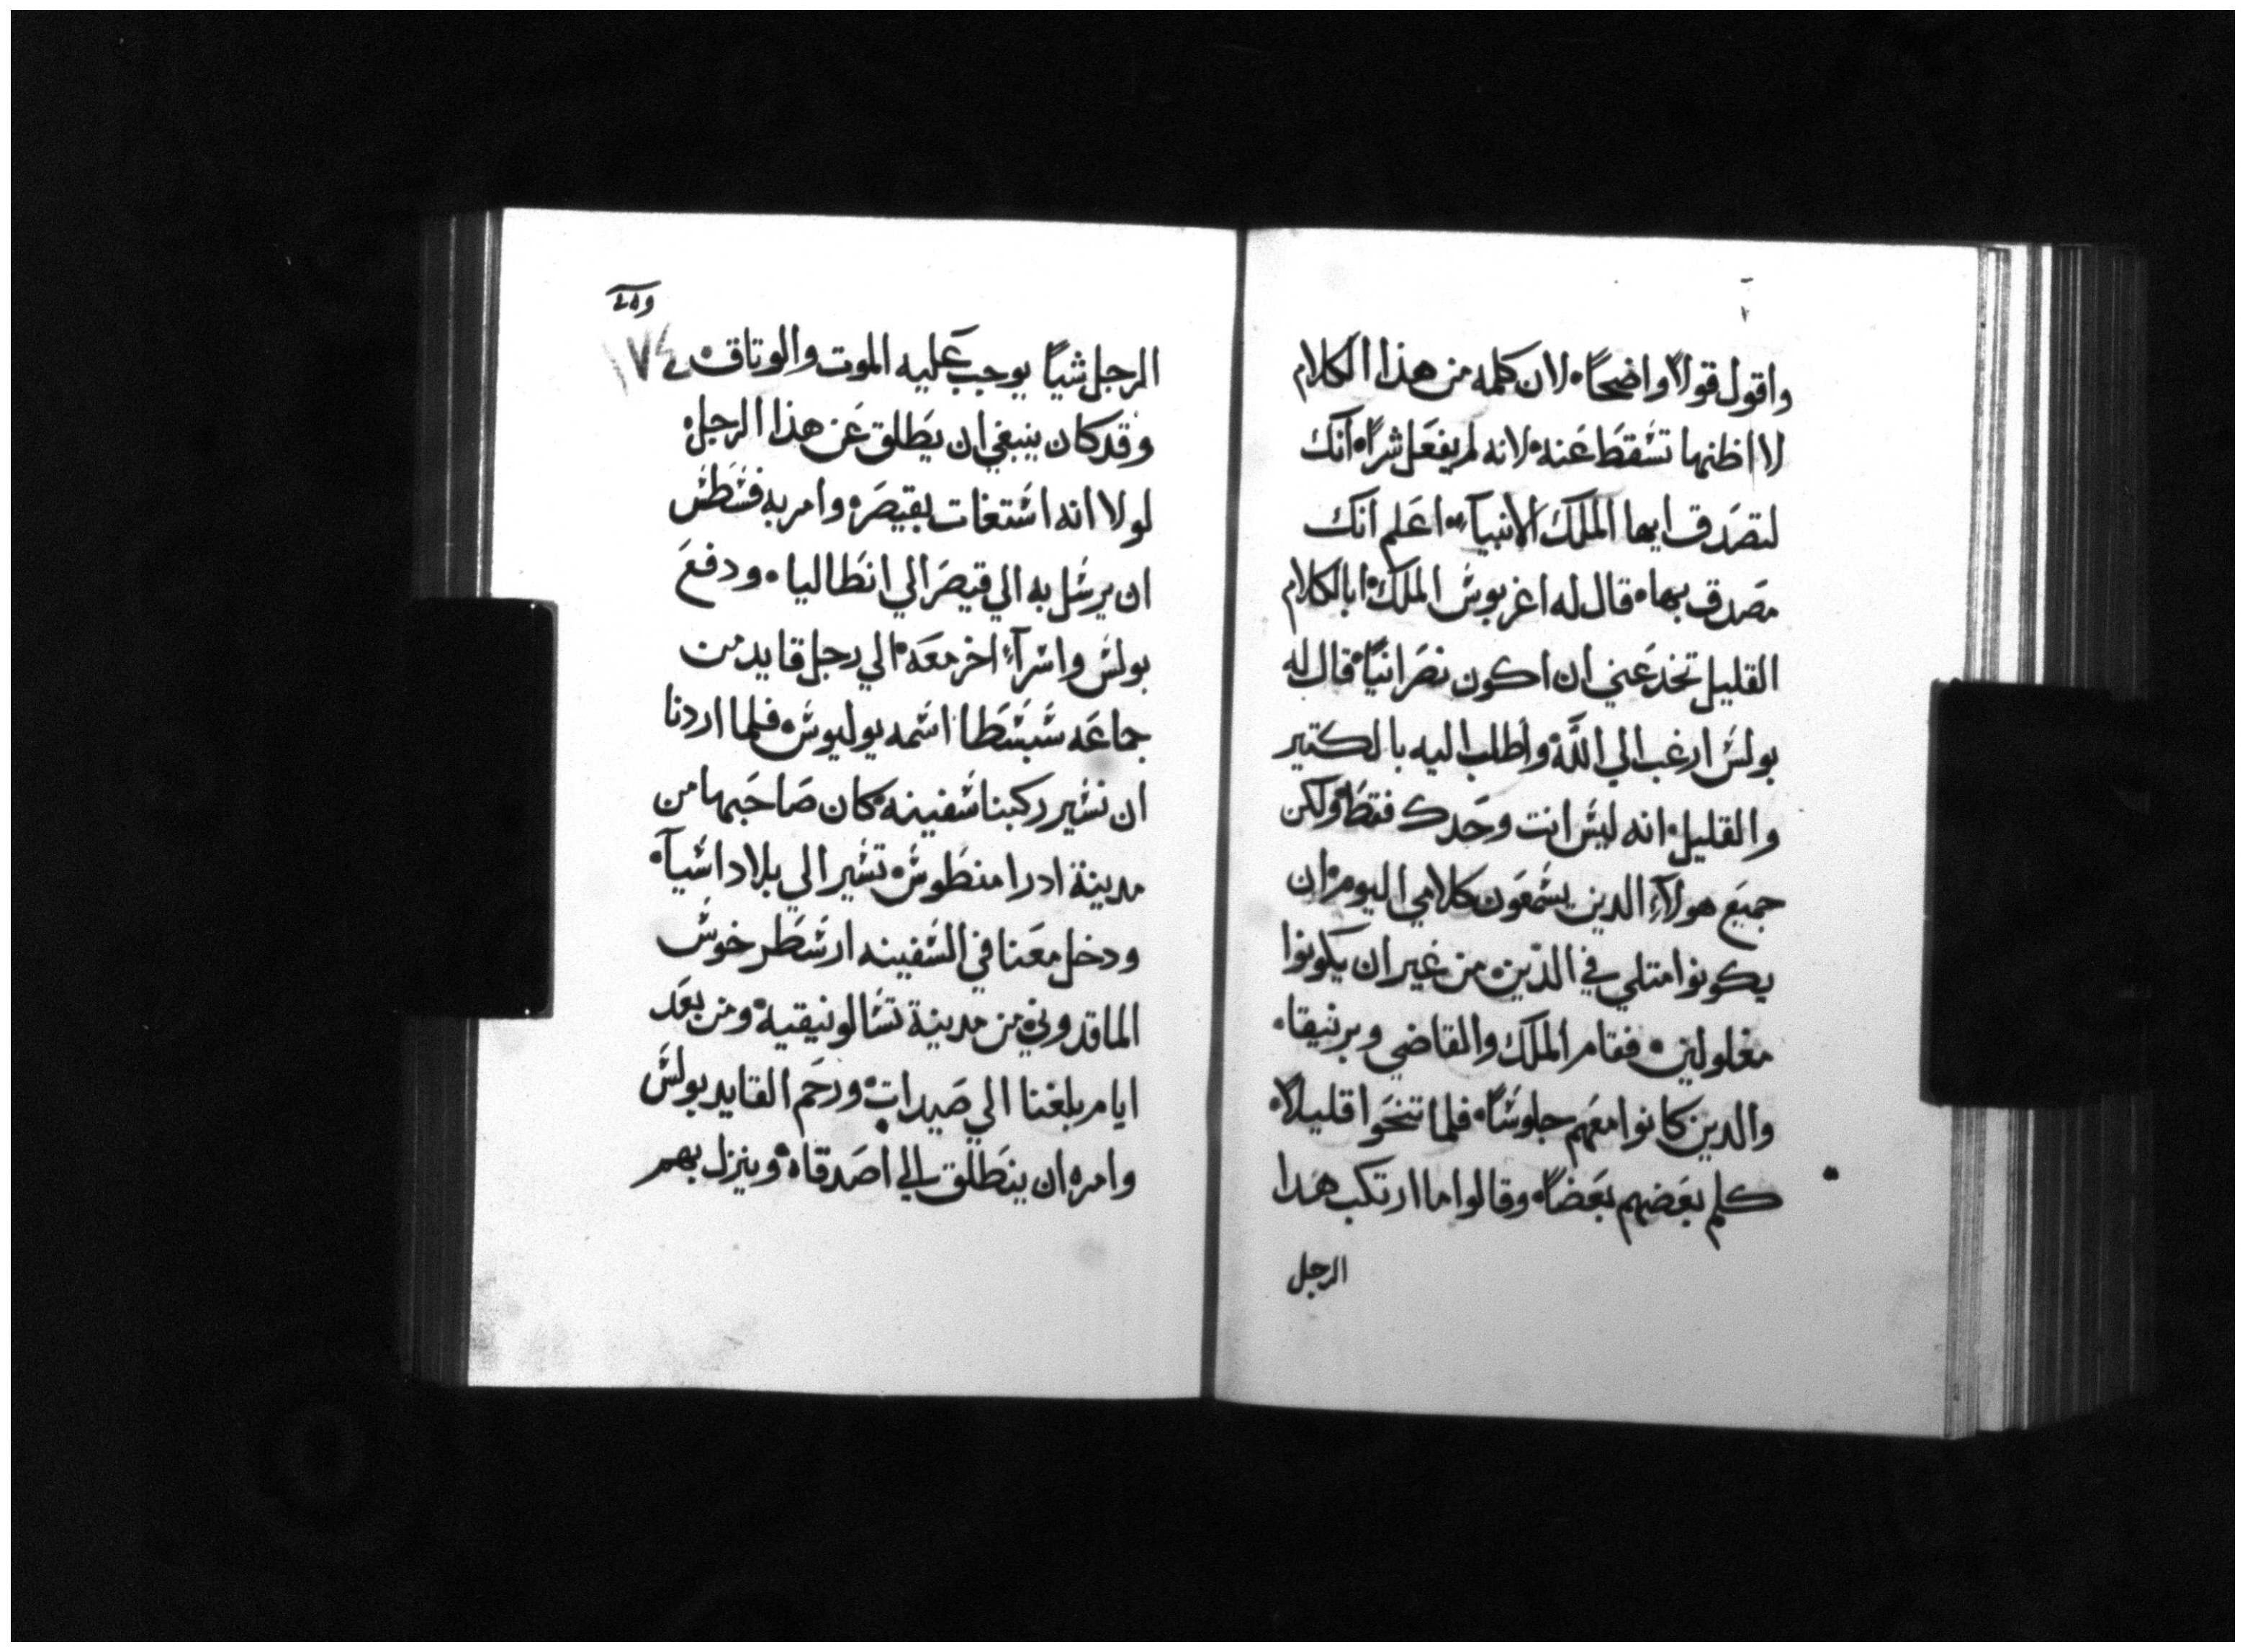 واقول قولاً واضحاً لان كلمه من هذا الكلام
لا اظنها تسقط عنه لانه لم يفعل شراً انك
لتصدق ايها الملك الانبيآء اعلم انك
مصدق بها قال له اغربوس الملك ابالكلام
القليل تخدعني ان اكون نصرانياً قال له
بولس ارغب الي الله واطلب اليه بالكتير
والقليل انه ليس انت وحدك فقط ولكن
جميع هولآء الدين يسمعون كلامي اليوم ان
يكونوا متلي في الدين من غير ان يكونوا
مغلولين فقام الملك والقاضي وبرنيقا
والدين كانوا معهم جلوساً فلما تنحوا قليلاً
كلم بعضهم بعضاً وقالوا ما ارتكب هدا
الرجل
١٧٤
الرجل شياً يوجب عليه الموت والوتاق
وقد كان ينبغي ان يطلق عن هذا الرجل
لولا انه استغات بقيصر وامر به فسطس
ان يرسل به الي قيصر الي انطاليا ودفع
بولس واسرآء اخر معه الي رجل قايد من
جماعه سبسطا اسمه يوليوس فلما اردنا
ان نسير ركبنا سفينه كان صاحبها من
مدينة ادرامنطوس تسير الي بلاد اسيآ
ودخل معنا في السفينه ارسطرخوس
الماقدوني من مدينة تسالونيقية ومن بعد
ايام بلغنا الي صيدات ورحم القايد بولس
وامره ان ينطلق الي اصدقاه وينزل بهم